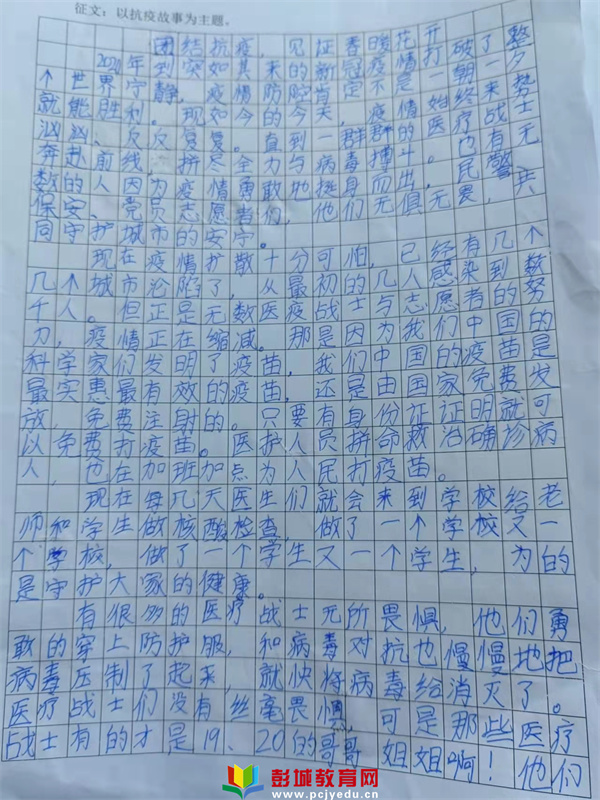 征文：以抗疫故事为主题。
团结抗疫，见证春暖花开
2020年到突如其来的新冠疫情打破了整
个世界宁静，疫情防控肯定不是一朝一夕
就能胜利。现如今的今天，疫情始终来势
汹汹、反反复复。直到一群群的医疗战士
奔赴前线，拼尽全力与病毒搏斗。也有无
数的人因为疫情勇敢地挺身而出，民警、
保安、党员志愿者们，他们无惧无畏，共
同守护城市的安宁。
现在疫情扩散十分可怕，已经有几个
几个城市沦陷了，从最初的几人感染到数
千人。但正是无数医疫战士与志愿者的努
力，疫情正在缩减。那是因为我们中国的
科学家们发明了疫苗，我们中国的疫苗是
最实惠最有效的疫苗，还是由国家免费发
放，免费注射的。只要有身份证证明就可
以免费打疫苗。医护人员拼命救治确诊病
人，也在加班加点为人民打疫苗。
现在每几天医生们就会来到学校给老
师和学生做核酸检查，做了一个学校又一
个学校，做了一个学生又一个学生，为的
是守护大家的健康。
有很多的医疗战士无所畏惧，他们勇
敢的穿上防护服，和病毒对抗也慢慢地把
病毒压制了起来，就快将病毒给消灭了！。
医疗战士们没有丝毫畏惧，可是那些医疗
战士有的才是19、20的哥哥姐姐啊！他们
彭城教育网
www.pcjyedu.cn